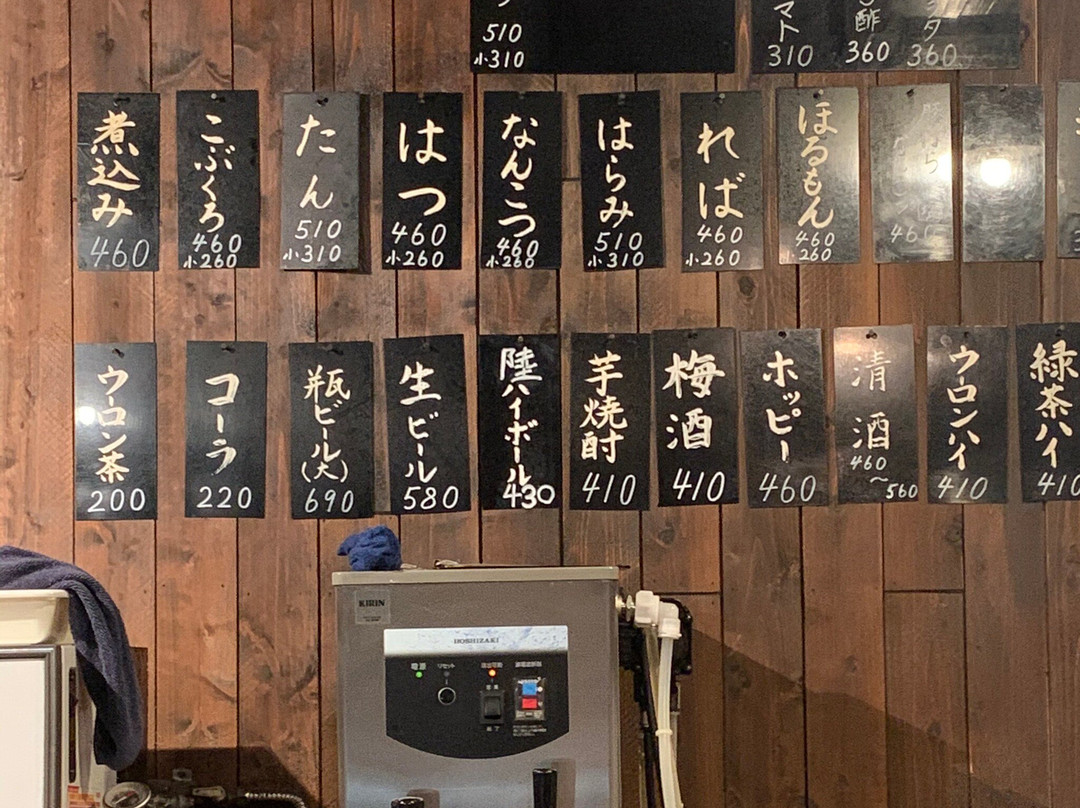 510
小310
マト
310
酢
360
タ
360
煮込み
460
こぶくろ
460
小260
たん
510
小310
はつ
460
小260
なんこつ
460
小260
はらみ
510
小310
ればー
460
小260
ほるもん
460
小260
ウーロン茶
200
コーラ
220
瓶ビール
(大)
690
生ビール
580
陸ハイボール
430
芋焼酎
410
梅酒
410
ホッピー
460
清酒
460
〜
560
ウーロンハイ
410
緑茶ハイ
410
KIRIN
HOSHIZAKI
電源
リセット